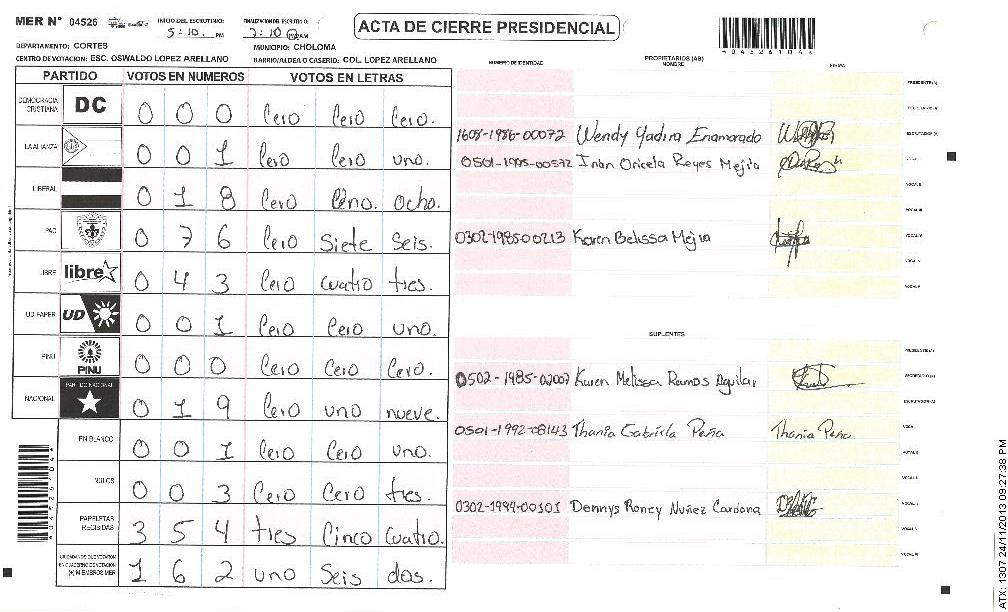 MER N° 04526
INICIO DEL ESCRUTINIO: 5:10 PM
FINALIZACION DEL ESCRUTINIO: 7:10 PM
ACTA DE CIERRE PRESIDENCIAL
DEPARTAMENTO: CORTES
MUNICIPIO: CHOLOMA
CENTRO DE VOTACION: ESC. OSWALDO LOPEZ ARELLANO
BARRIO/ALDEA O CASERIO: COL. LOPEZ ARELLANO
PARTIDO VOTOS EN NUMEROS VOTOS EN LETRAS
DEMOCRACIA CRISTIANA DC 0 0 0 Cero Cero Cero.
LA ALIANZA 0 0 1 Cero Cero uno.
LIBERAL 0 1 8 Cero Ocho.
PAC 0 7 6 Cero Siete Seis.
LIBRE libre 0 4 3 Cero cuatro tres.
UD FAPER UD 0 0 1 Cero Cero uno.
PINU PINU 0 0 0 Cero Cero Cero.
NACIONAL PARTIDO NACIONAL 0 1 9 Cero uno nueve.
EN BLANCO 0 0 1 Cero Cero uno.
NULOS 0 0 3 Cero Cero tres.
PAPELETAS RECIBIDAS 3 5 4 tres Cinco Cuatro.
CIUDADANOS QUE VOTARON EN CUADERNO DE VOTACION (+) MIEMBROS MER 1 6 2 uno Seis dos.
NUMERO DE IDENTIDAD
PROPIETARIOS (AS)
NOMBRE
FIRMA
PRESIDENTE(A)
SECRETARIO(A)
1608-1986-00072 Wendy Yadira Enamorado ESCRUTADOR(A)
0501-1995-00572 Oricela Reyes Mejia VOCAL I
VOCAL II
VOCAL III
0302-1985-00213 Karen Belissa Mejia VOCAL IV
VOCAL V
VOCAL VI
SUPLENTES
PRESIDENTE(A)
0502-1985-02007 Karen Melissa Ramos Aguilar SECRETARIO(A)
ESCRUTADOR(A)
0501-1992-08143 Thania Gabriela Peña Thania Peña VOCAL I
VOCAL II
0302-1994-00101 Dennys Roney Nuñez Cardona
ATX: 1307 24/11/2013 09:27:38 PM